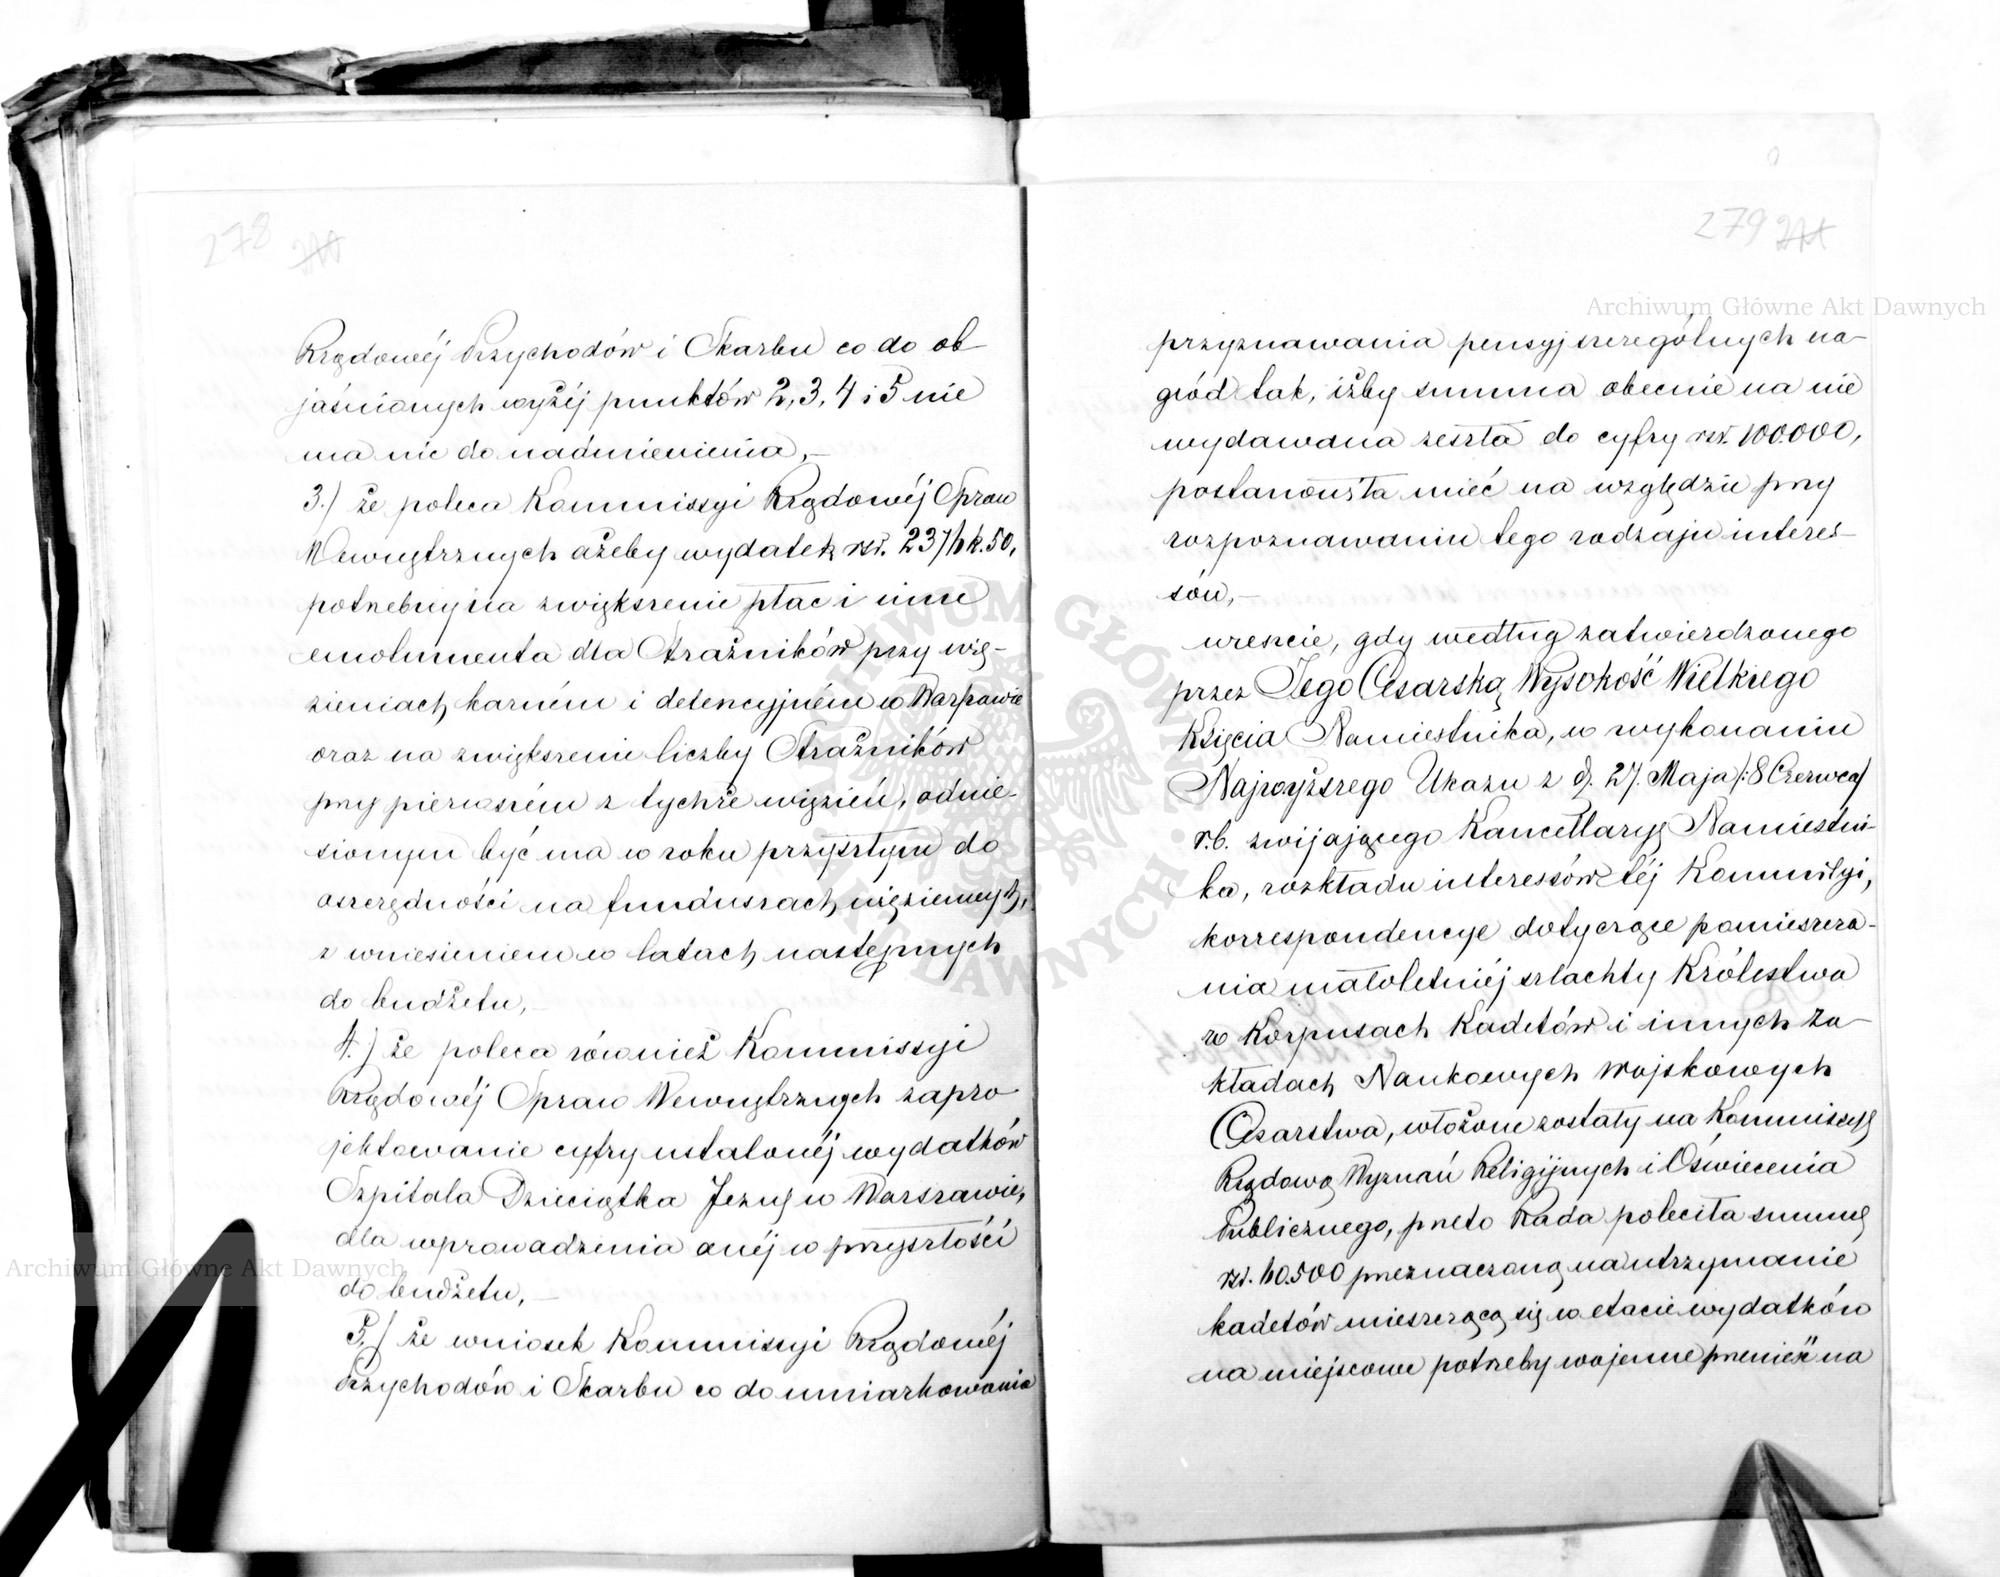 278
Rządowéj Przychodów i Skarbu co do ob-
jaśnionych wyżéj punktów 2, 3, 4 i 5 nie
ma nic do nadmienienia,—
3.) że poleca Kommissyi Rządowéj Spraw
Wewnętrznych ażeby wydatek rsr. k. 50,
potrzebny na zwiększenie płac i inne
emolumenta dla Strażników przy wię-
zieniach karném i detencyjném w Warszawie
oraz na zwiększenie liczby Strażników
przy pierwszém z tychże więzień, odnie-
sionym być ma w roku przyszłym do
oszczędności na funduszach więziennych,
z wniesieniem w latach następnych
do budżetu,—
4.) że poleca również Kommissyi
Rządowéj Spraw Wewnętrznych zapro-
jektowanie cyfry ustalonéj wydatków
Szpitala Dzieciątka Jezus w Warszawie,
dla wprowadzenia onéj w przyszłości
do budżetu,—
5.) że wniosek Kommissyi Rządowéj
Przychodów i Skarbu co do umiarkowania
279
przyznawania pensyj szczególnych na-
gród tak, iżby summa obecnie na nie
wydawana zeszła do cyfry rsr. 100.000,
postanowiła mieć na względzie przy
rozpoznawaniu tego rodzaju interes-
sów,—
wreszcie, gdy według zatwierdzonego
przez Jego Cesarską Wysokość Wielkiego
Księcia Namiestnika, w wykonaniu
Najwyższego Ukazu z d. 27. Maja /:8 Czerwca/
r.b. zwijającego Kancellaryę Namiestni-
ka, rozkładu interessów téj Kommissyi,
korrespondencye dotyczące pomieszcza-
nia małoletniéj szlachty Królestwa
w Korpusach Kadetów i innych Za-
kładach Naukowych Wojskowych
Cesarstwa, włożone zostały na Kommissyę
Rządową Wyznań Religijnych i Oświecenia
Publicznego, przeto Rada poleciła summę
rsr. 40.500 przeznaczoną na utrzymanie
kadetów mieszczącą się w etacie wydatków
na miejscowe potrzeby wojenne przenieść na
Archiwum Główne Akt Dawnych
Archiwum Główne Akt Dawnych
ARCHIWUM GŁÓWNE AKT DAWNYCH